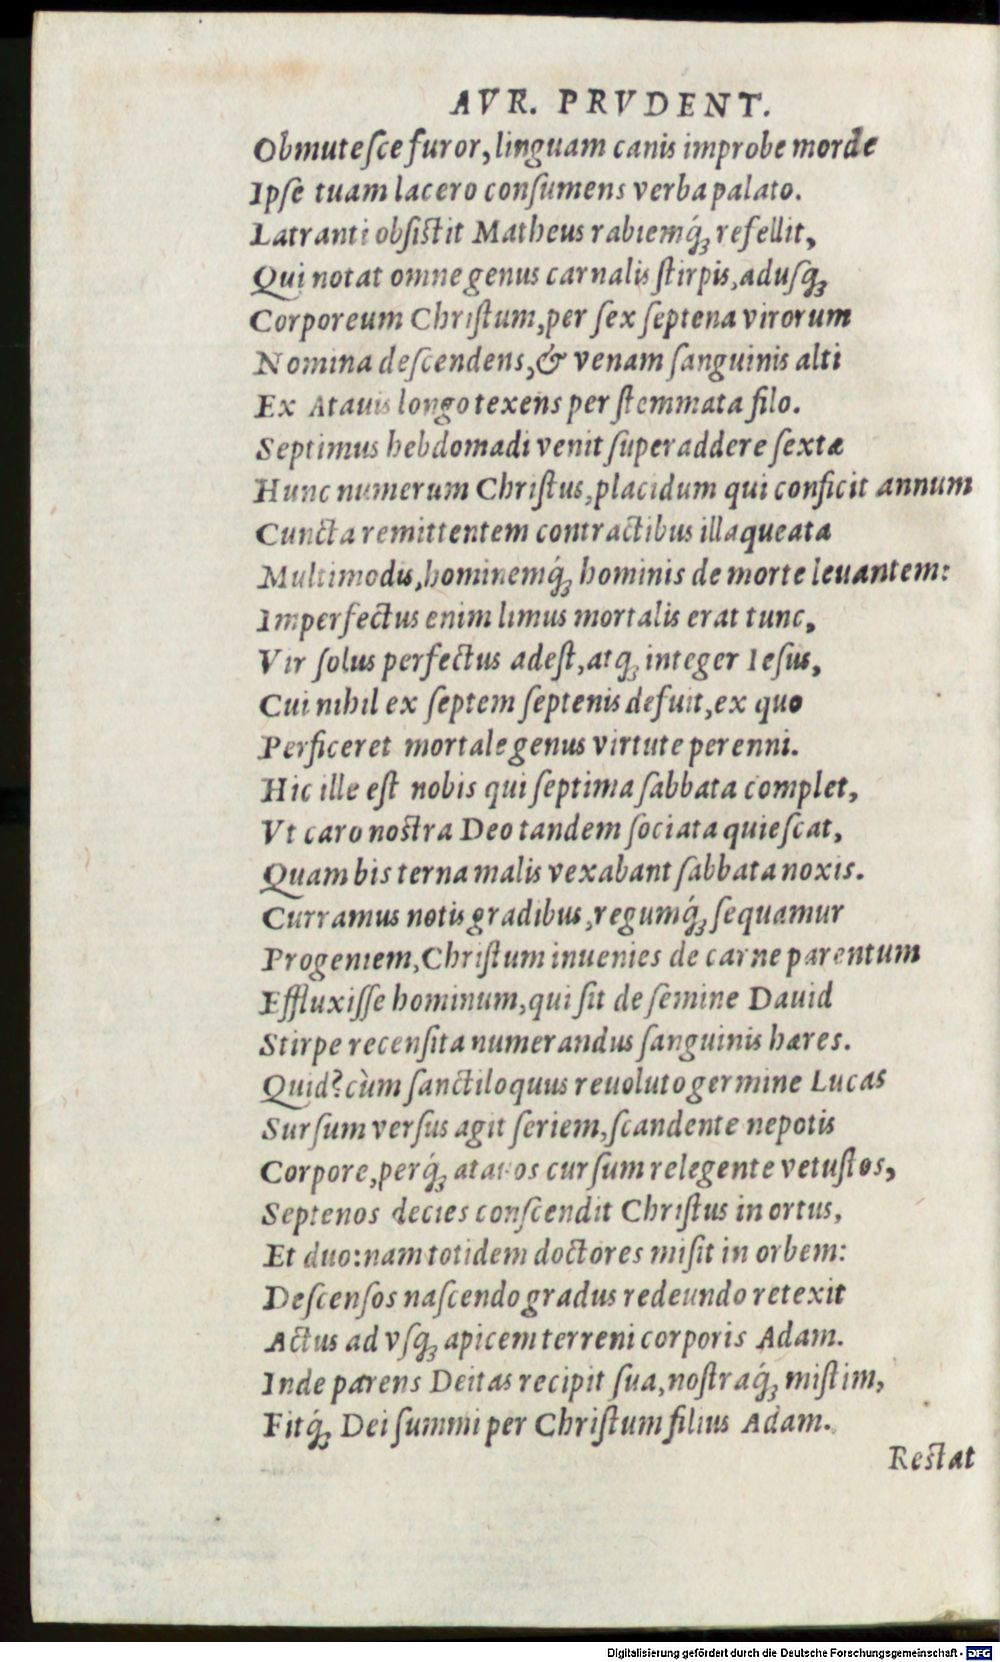 AVR. PRVDENT.
Obmuteſce furor, linguam canis improbe morde
Ipſe tuam lacero conſumens verba palato.
Latranti obſiſtit Matheus rabiemq́ꝫ refellit,
Qui notat omne genus carnalis ſtirpis, aduſqꝫ
Corporeum Chriſtum, per ſex ſeptena virorum
Nomina deſcendens, & venam ſanguinis alti
Ex Atauis longo texens per ſtemmata filo.
Septimus hebdomadi venit ſuperaddere ſextæ
Hunc numerum Chriſtus, placidum qui conficit annum
Cuncta remittentem contractibus illaqueata
Multimodis, hominemq́ꝫ hominis de morte leuantem:
Imperfectus enim limus mortalis erat tunc,
Vir ſolus perfectus adeſt, atqꝫ integer Ieſus,
Cui nihil ex ſeptem ſeptenis defuit, ex quo
Perficeret mortale genus virtute perenni.
Hic ille eſt nobis qui ſeptima ſabbata complet,
Vt caro noſtra Deo tandem ſociata quieſcat,
Quam bis terna malis vexabant ſabbata noxis.
Curramus notis gradibus, regumq́ꝫ ſequamur
Progeniem, Chriſtum inuenies de carne parentum
Effluxiſſe hominum, qui ſit de ſemine Dauid
Stirpe recenſita numerandus ſanguinis hæres.
Quid? cùm ſanctiloquus reuoluto germine Lucas
Surſum verſus agit ſeriem, ſcandente nepotis
Corpore, perq́ꝫ atauos curſum relegente vetuſtos,
Septenos decies conſcendit Chriſtus in ortus,
Et duo: nam totidem doctores miſit in orbem:
Deſcenſos naſcendo gradus redeundo retexit
Actus ad vſqꝫ apicem terreni corporis Adam.
Inde parens Deitas recipit ſua, noſtraq́ꝫ miſtim,
Fitq́ꝫ Dei ſummi per Chriſtum filius Adam.
Reſtat
Digitalisierung gefördert durch die Deutsche Forschungsgemeinschaft - DFG